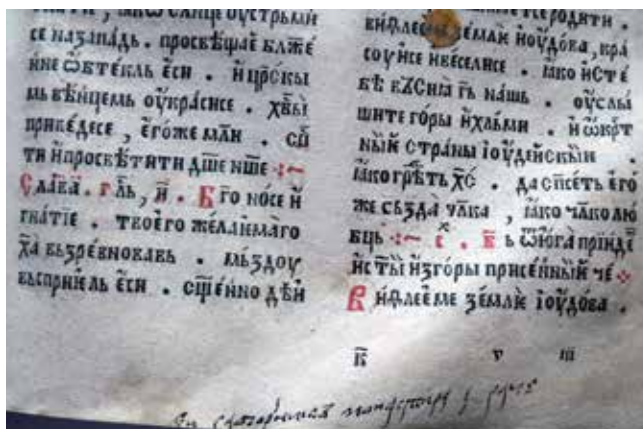 се назападь . просвѣщае блж҃е
и҆не ѡ҆бтекль є҆си . и҆ цр҃скы
мь вѣнцемь оу҆красисе . хв҃ы
приведесе , є҆гоже мл҃и . сп҃
ти и҆ просвѣтити дш҃е нш҃е :~
Слава . гл҃ь , и҃ . Бг҃оносе и҆
гнатїе . твоего желаннаго
ха҃ вьзревновавь . мьздоу
вьспрїель є҆си . сщ҃енно дѣи
виѳлеѡме землꙗ и҆оудова , кра
соуисе и҆ веселисе . ꙗко и҆с те
бѣ вьсиꙗ гь҃ нашь . оуслы
шите горы и҆ хльми . и҆ ѡкрт҃
ныи страны і҆оудейскыи
ꙗко греть҃ хс҃ . да сп҃сеть є҆го
же сьзда чл҃ка , ꙗко чл҃колю
бць :~ с҃ . в҃ ь ѿ ю҆га прїидѐ
и҆ ст҃ыи и҆з горы присеннꙑи че
Виѳлееме земли і҆оудова .
в҃ ѵ ш